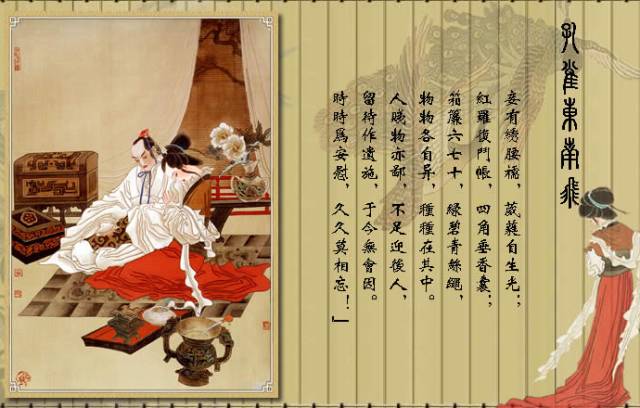 孔雀東南飛
妾有繡腰襦，葳蕤自生光；
紅羅複鬥帳，四角垂香囊；
箱簾六七十，綠碧青絲繩，
物物各自异，種種在其中。
人賤物亦鄙，不足迎後人，
留待作遺施，于今無會因。
時時爲安慰，久久莫相忘！」